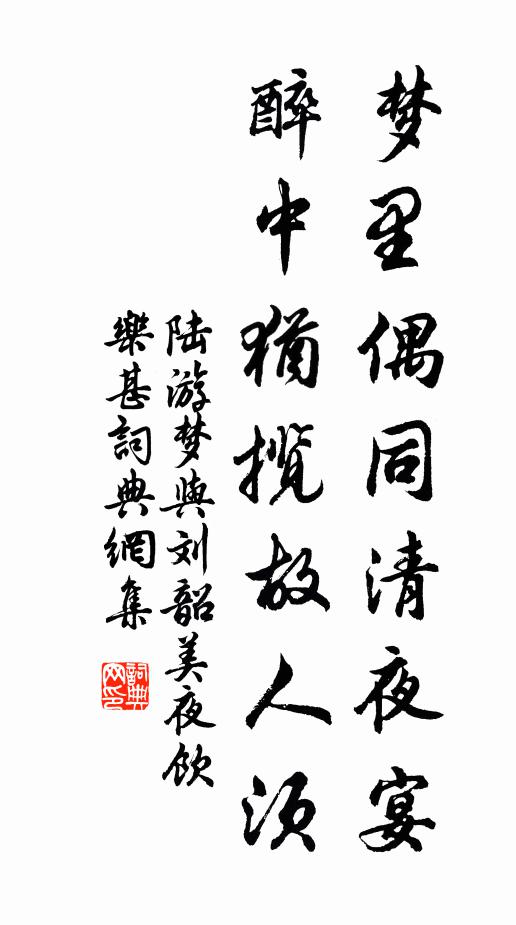 梦里偶同清夜宴
醉中犹揽故人须
陆游梦与刘韶美夜饮
樂甚詞典網集
詞典网印